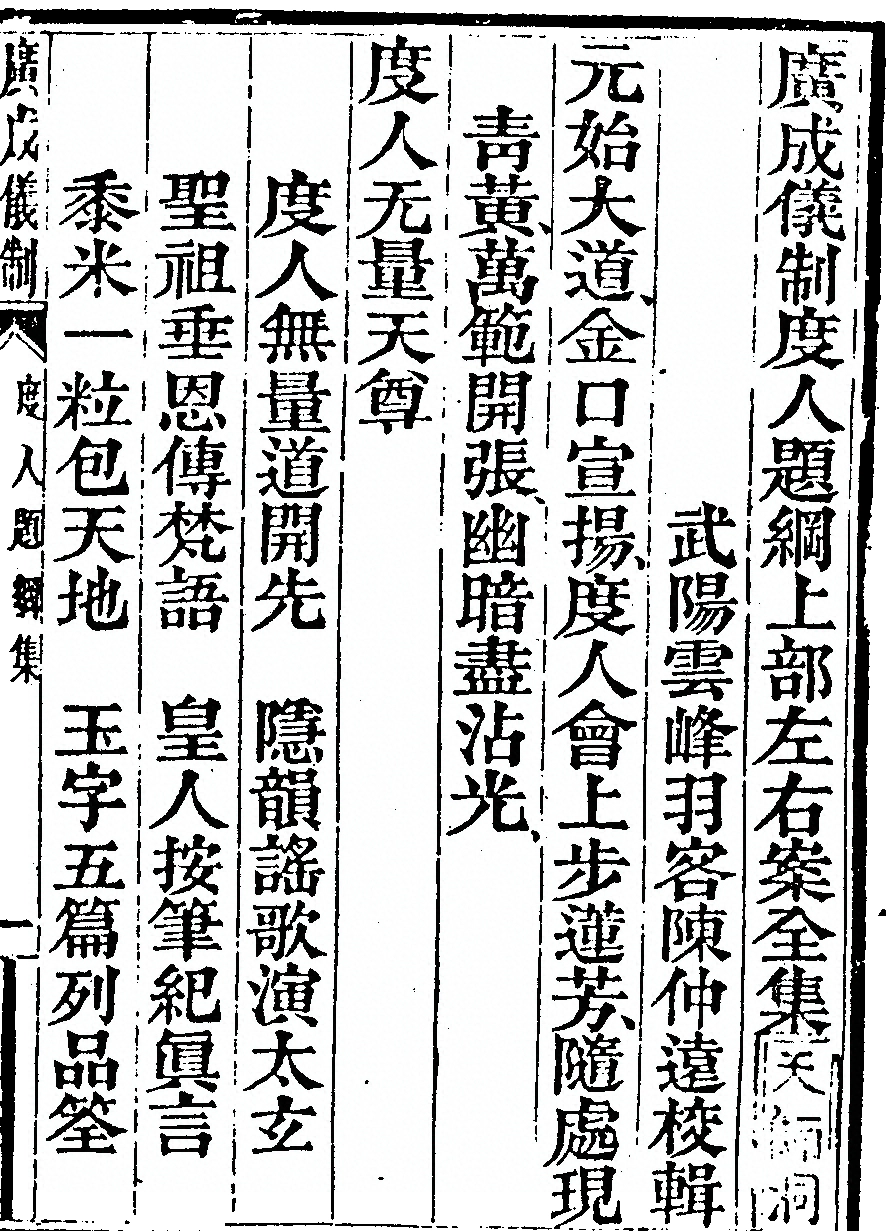 廣成儀制度人題綱上部左右案全集 天師洞
武陽雲峰羽客陳仲遠校輯
元始大道、金口宣揚、度人會上步蓮芳、隨處現
青黃、萬範開張、幽暗盡沾光、
度人无量天尊
度人無量道開先 隱韻謠歌演太玄
聖祖垂恩傳梵語 皇人按筆紀眞言
黍米一粒包天地 玉字五篇列品筌
廣成儀制 度人題綱集 一